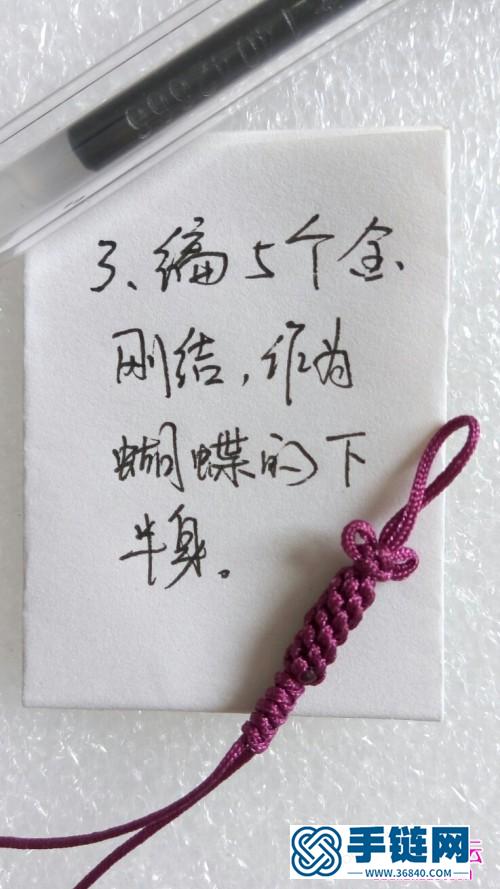 3、编5个金
刚结，作为
蝴蝶的下
半身。
云
手链网
WWW.36840.COM